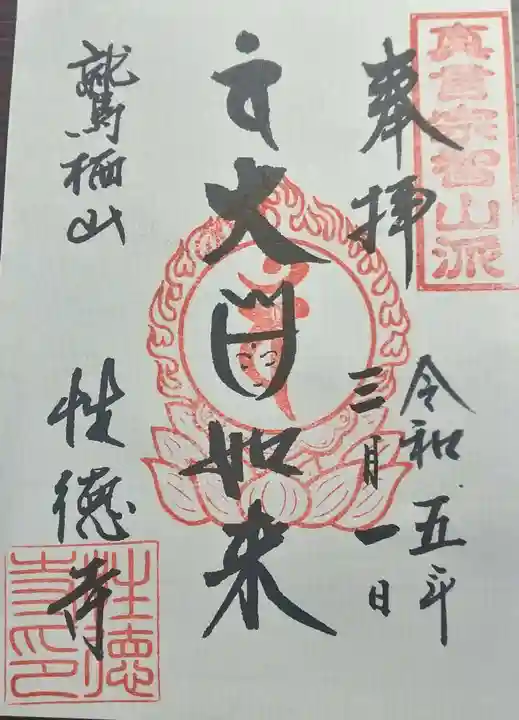 真言宗智山派
奉拝
令和五年
三月一日
大日如来
鷲栖山
性徳寺
性徳寺印